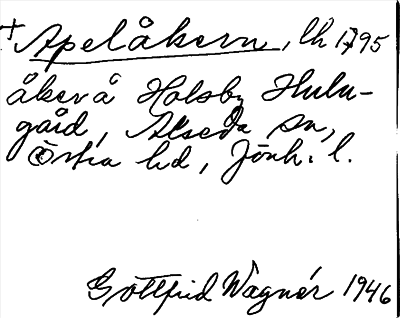 † Apelåkern, lh 1795
åker å Holsby Hulu-
gård, Alseda sn,
Östra hd, Jönk. l.
Gottfrid Wagnér 1946